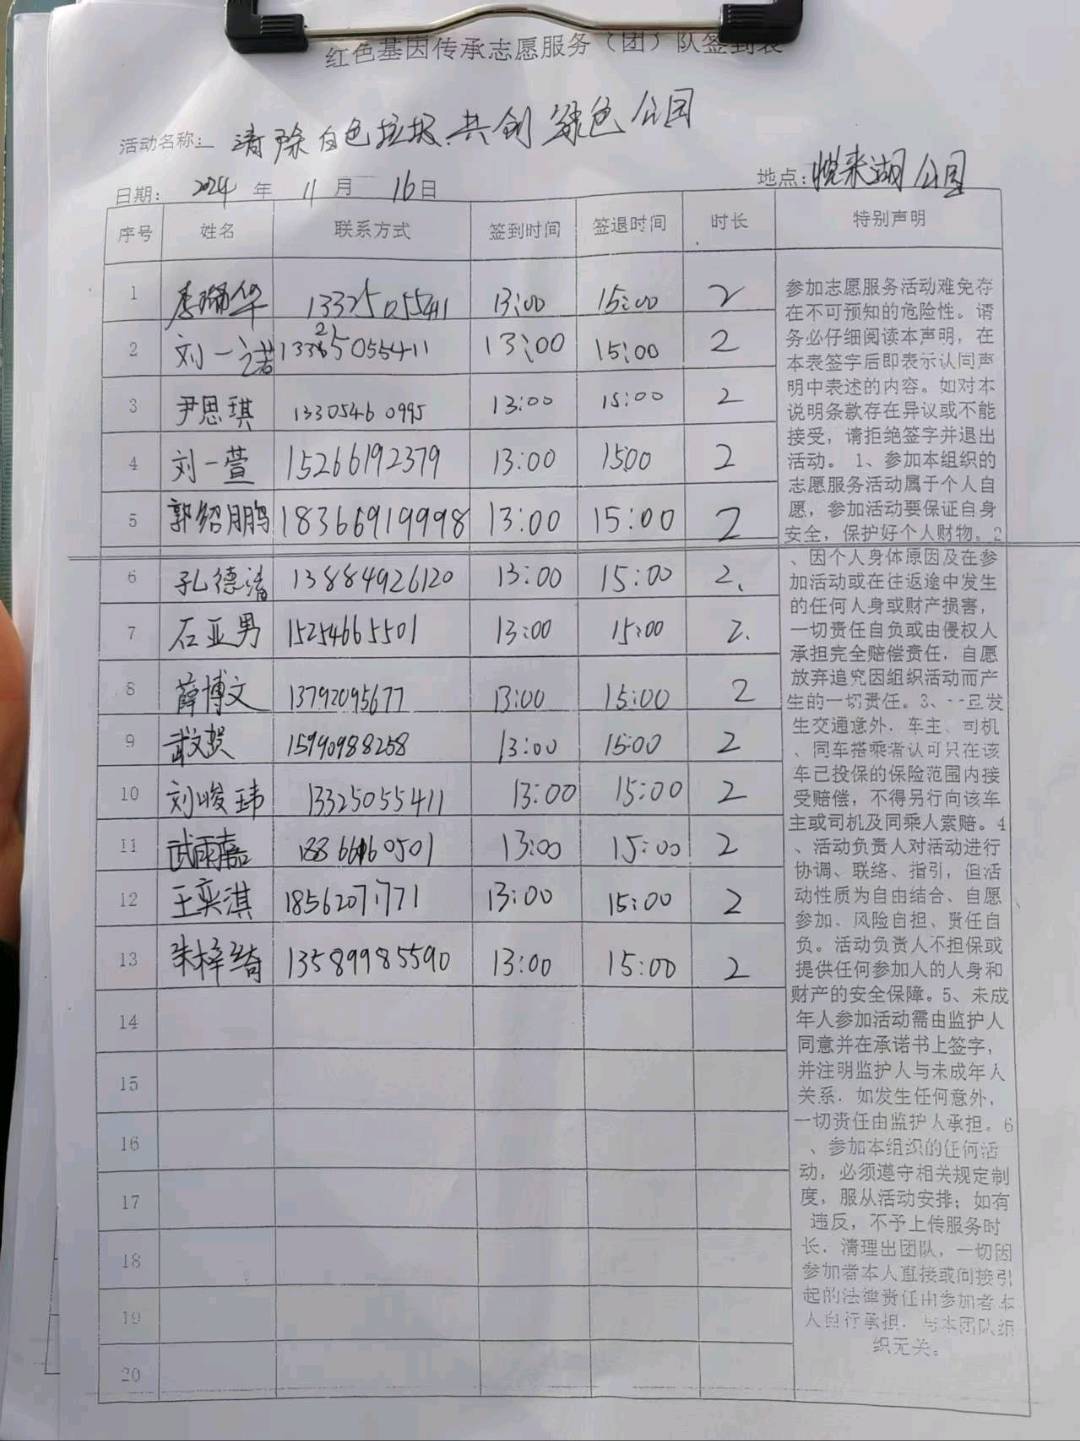 红色基因传承志愿服务（团）队签到表
活动名称： 清除白色垃圾.共创绿色公园
日期： 2024 年 11 月 16日 地点：悦来湖公园
序号 姓名 联系方式 签到时间 签退时间 时长 特别声明
1 13325055411 13:00 15:00 2
2 刘一诺 13325055411 13:00 15:00 2
3 尹思琪 13305460995 13:00 15:00 2
4 刘一萱 15266192379 13:00 1500 2
5 郭绍鹏 18366919998 13:00 15:00 2
6 孔德清 13884926120 13:00 15:00 2.
7 石亚男 15254665501 13:00 15:00 2.
8 薛博文 13792095677 13:00 15:00 2
9 武文贺 15990988258 13:00 15:00 2
10 刘峻玮 13325055411 13:00 15:00 2
11 武雨嘉 13:00 15:00 2
12 王奕淇 18562071771 13:00 15:00 2
13 朱梓绮 13589985590 13:00 15:00 2
14
15
16
17
18
19
20
参加志愿服务活动难免存
在不可预知的危险性。请
务必仔细阅读本声明，在
本表签字后即表示认同声
明中表述的内容。如对本
说明条款存在异议或不能
接受，请拒绝签字并退出
活动。 1、参加本组织的
志愿服务活动属于个人自
愿，参加活动要保证自身
安全，保护好个人财物。2
、因个人身体原因及在参
加活动或在往返途中发生
的任何人身或财产损害，
一切责任自负或由侵权人
承担完全赔偿责任，自愿
放弃追究因组织活动而产
生的一切责任。3、一旦发
生交通意外，车主、司机
、同车搭乘者认可只在该
车已投保的保险范围内接
受赔偿，不得另行向该车
主或司机及同乘人索赔。4
、活动负责人对活动进行
协调、联络、指引，但活
动性质为自由结合、自愿
参加、风险自担、责任自
负。活动负责人不担保或
提供任何参加人的人身和
财产的安全保障。5、未成
年人参加活动需由监护人
同意并在承诺书上签字，
并注明监护人与未成年人
关系，如发生任何意外，
一切责任由监护人承担。6
、参加本组织的任何活
动，必须遵守相关规定制
度，服从活动安排；如有
违反，不予上传服务时
长，清理出团队，一切因
参加者本人直接或间接引
起的法律责任由参加者本
人自行承担，与本团队组
织无关。